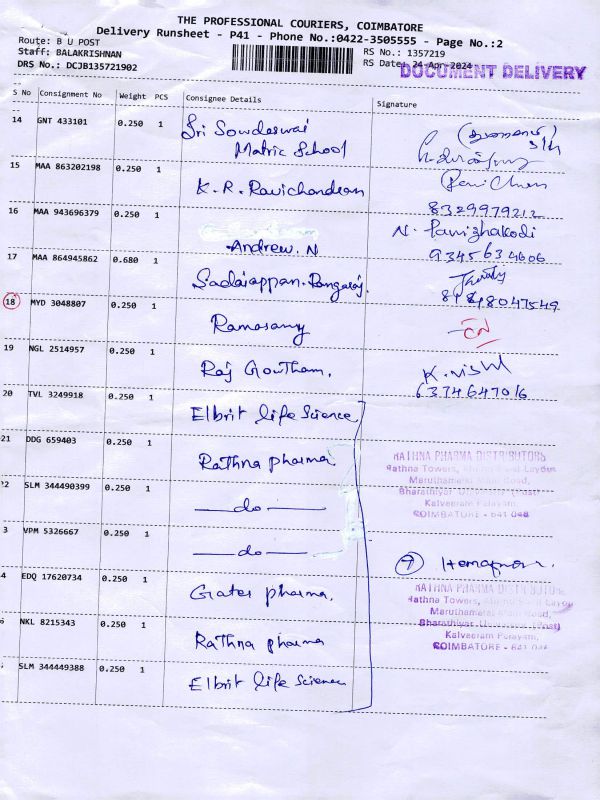 THE PROFESSIONAL COURIERS, COIMBATORE
Delivery Runsheet - P41 - Phone No.:0422-3505555 - Page No.:2
Route: B U POST
RS No.: 1357219
Staff: BALAKRISHNAN
RS Date: 24-Apr-2024
DRS No.: DCJB135721902
DOCUMENT DELIVERY
S No Consignment No Weight PCS Consignee Details Signature
14 GNT 433101 0.250 1 Sri Sowdeswai
Matric School
15 MAA 863202198 0.250 1 K. R. Ravichandran
8329979212
16 MAA 943696379 0.250 1 N. Pamizhakodi
Andrew. N
9345634606
17 MAA 864945862 0.680 1 Sadaiappan. Rangaraj.
8148047549
18 MYD 3048807 0.250 1 Ramasamy
19 NGL 2514957 0.250 1 Raj Goutham. K. Nishl
6374647016
20 TVL 3249918 0.250 1 Elbrit life Science
21 DDG 659403 0.250 1 Rathna pharma
RATHNA PHARMA DISTRIBUTORS
Rathna Towers,
Maruthamalai Main Road,
2 SLM 344490399 0.250 1 do
Bharathiyar University (Post)
Kalveeram Palayam,
COIMBATORE - 641 046
3 VPM 5326667 0.250 1 do
7
4 EDQ 17620734 0.250 1 Grater pharma.
RATHNA PHARMA DISTRIBUTORS
Rathna Towers,
Maruthamalai Main Road,
NKL 8215343 0.250 1 Rathna pharma
Bharathiyar University (Post)
Kalveeram Palayam,
COIMBATORE - 641 046
SLM 344449388 0.250 1 Elbrit life Science